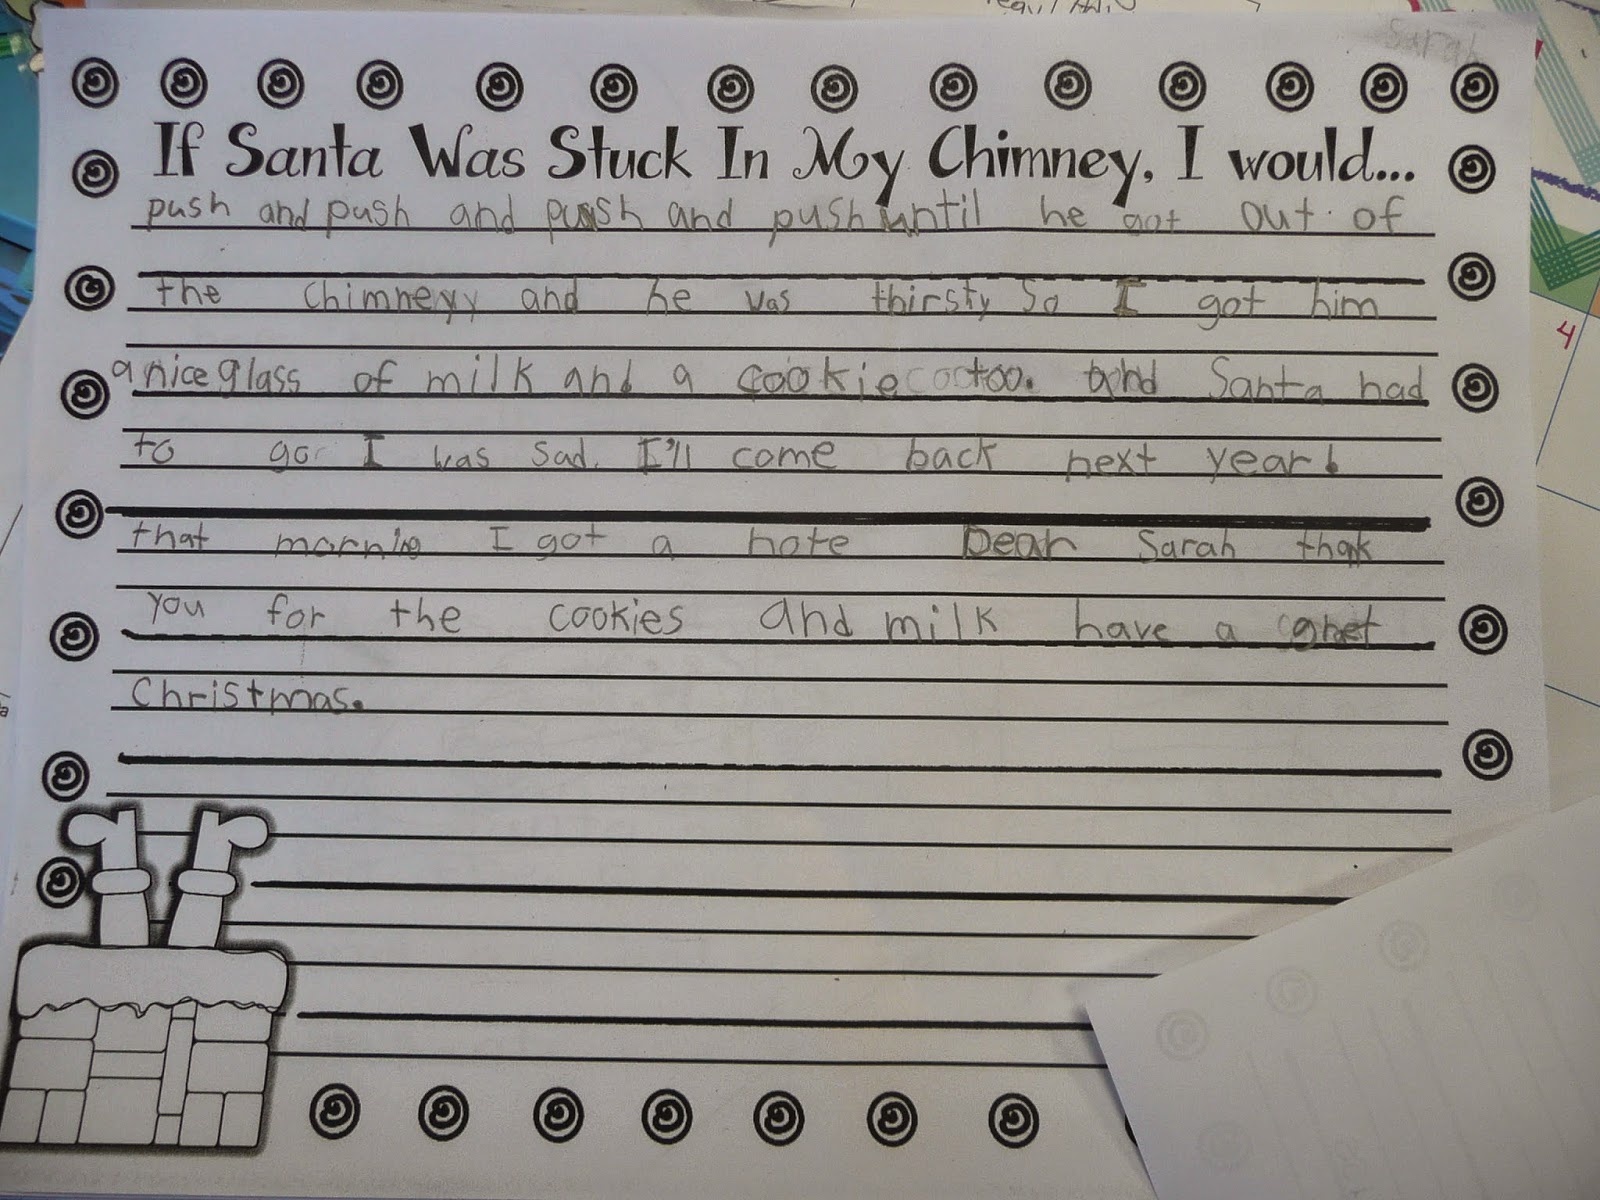 Sarah
If Santa Was Stuck In My Chimney, I would...
push and push and push and push until he got out of
the Chimneyy and he was thirsty So I got him
a nice glass of milk and a cookie too. and Santa had
to go I was sad. I'll come back next year!
that mornin I got a note Dear Sarah thak
you for the cookies and milk have a gret
Christmas.
4